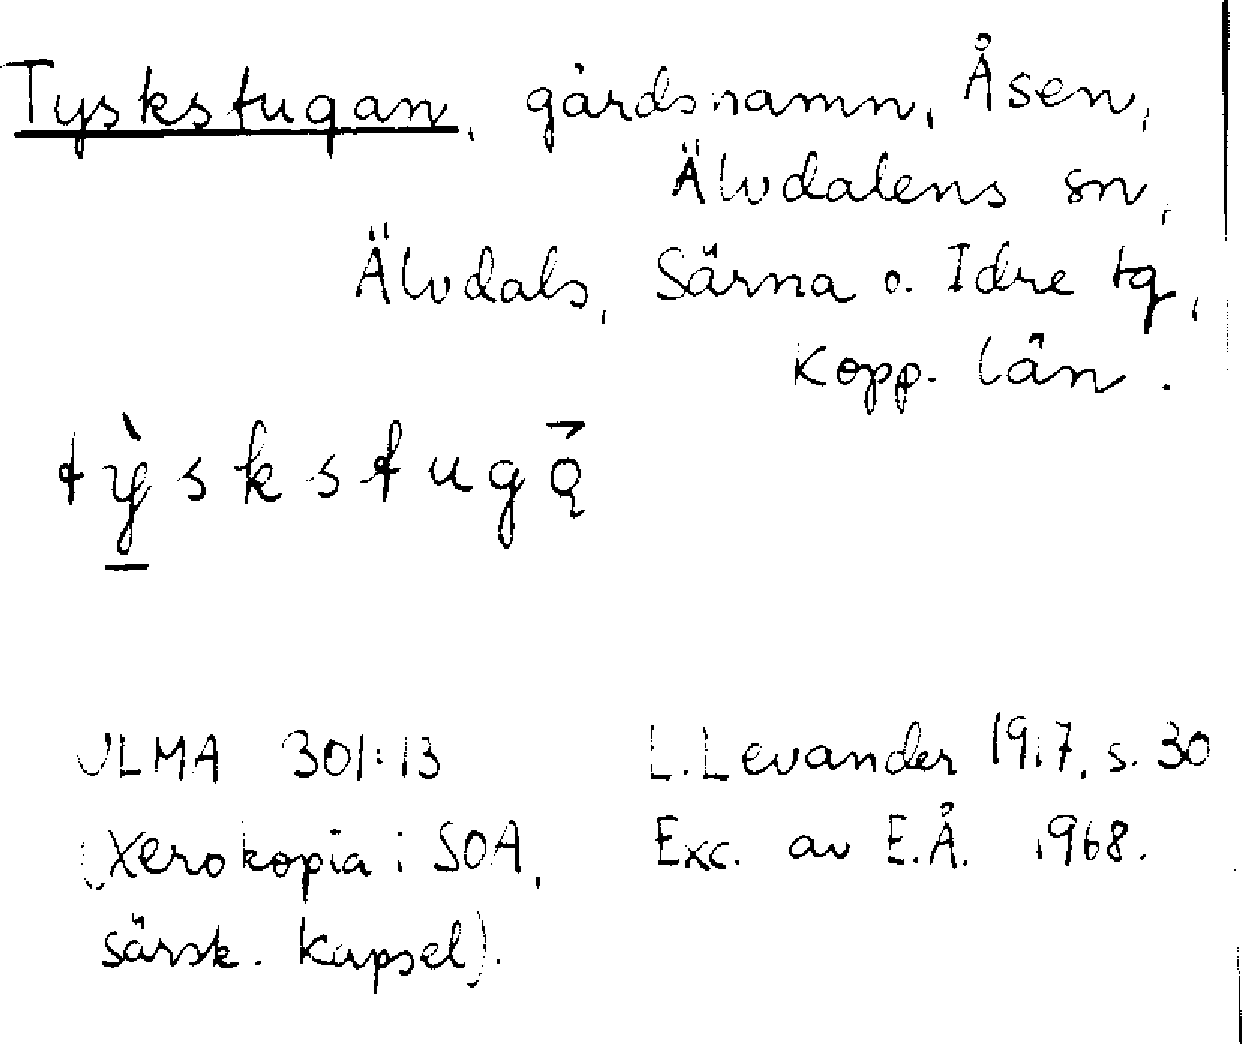 Tyskstugan, gårdsnamn, Åsen,
Älvdalens sn,
Älvdals, Särna o. Idre tg,
Kopp. län.
tỳskstugą̄
ULMA 301:13 L. Levander 1917, s. 30
(Xerokopia i SOA, Exc. av E.Å. 1968.
särsk. kapsel).